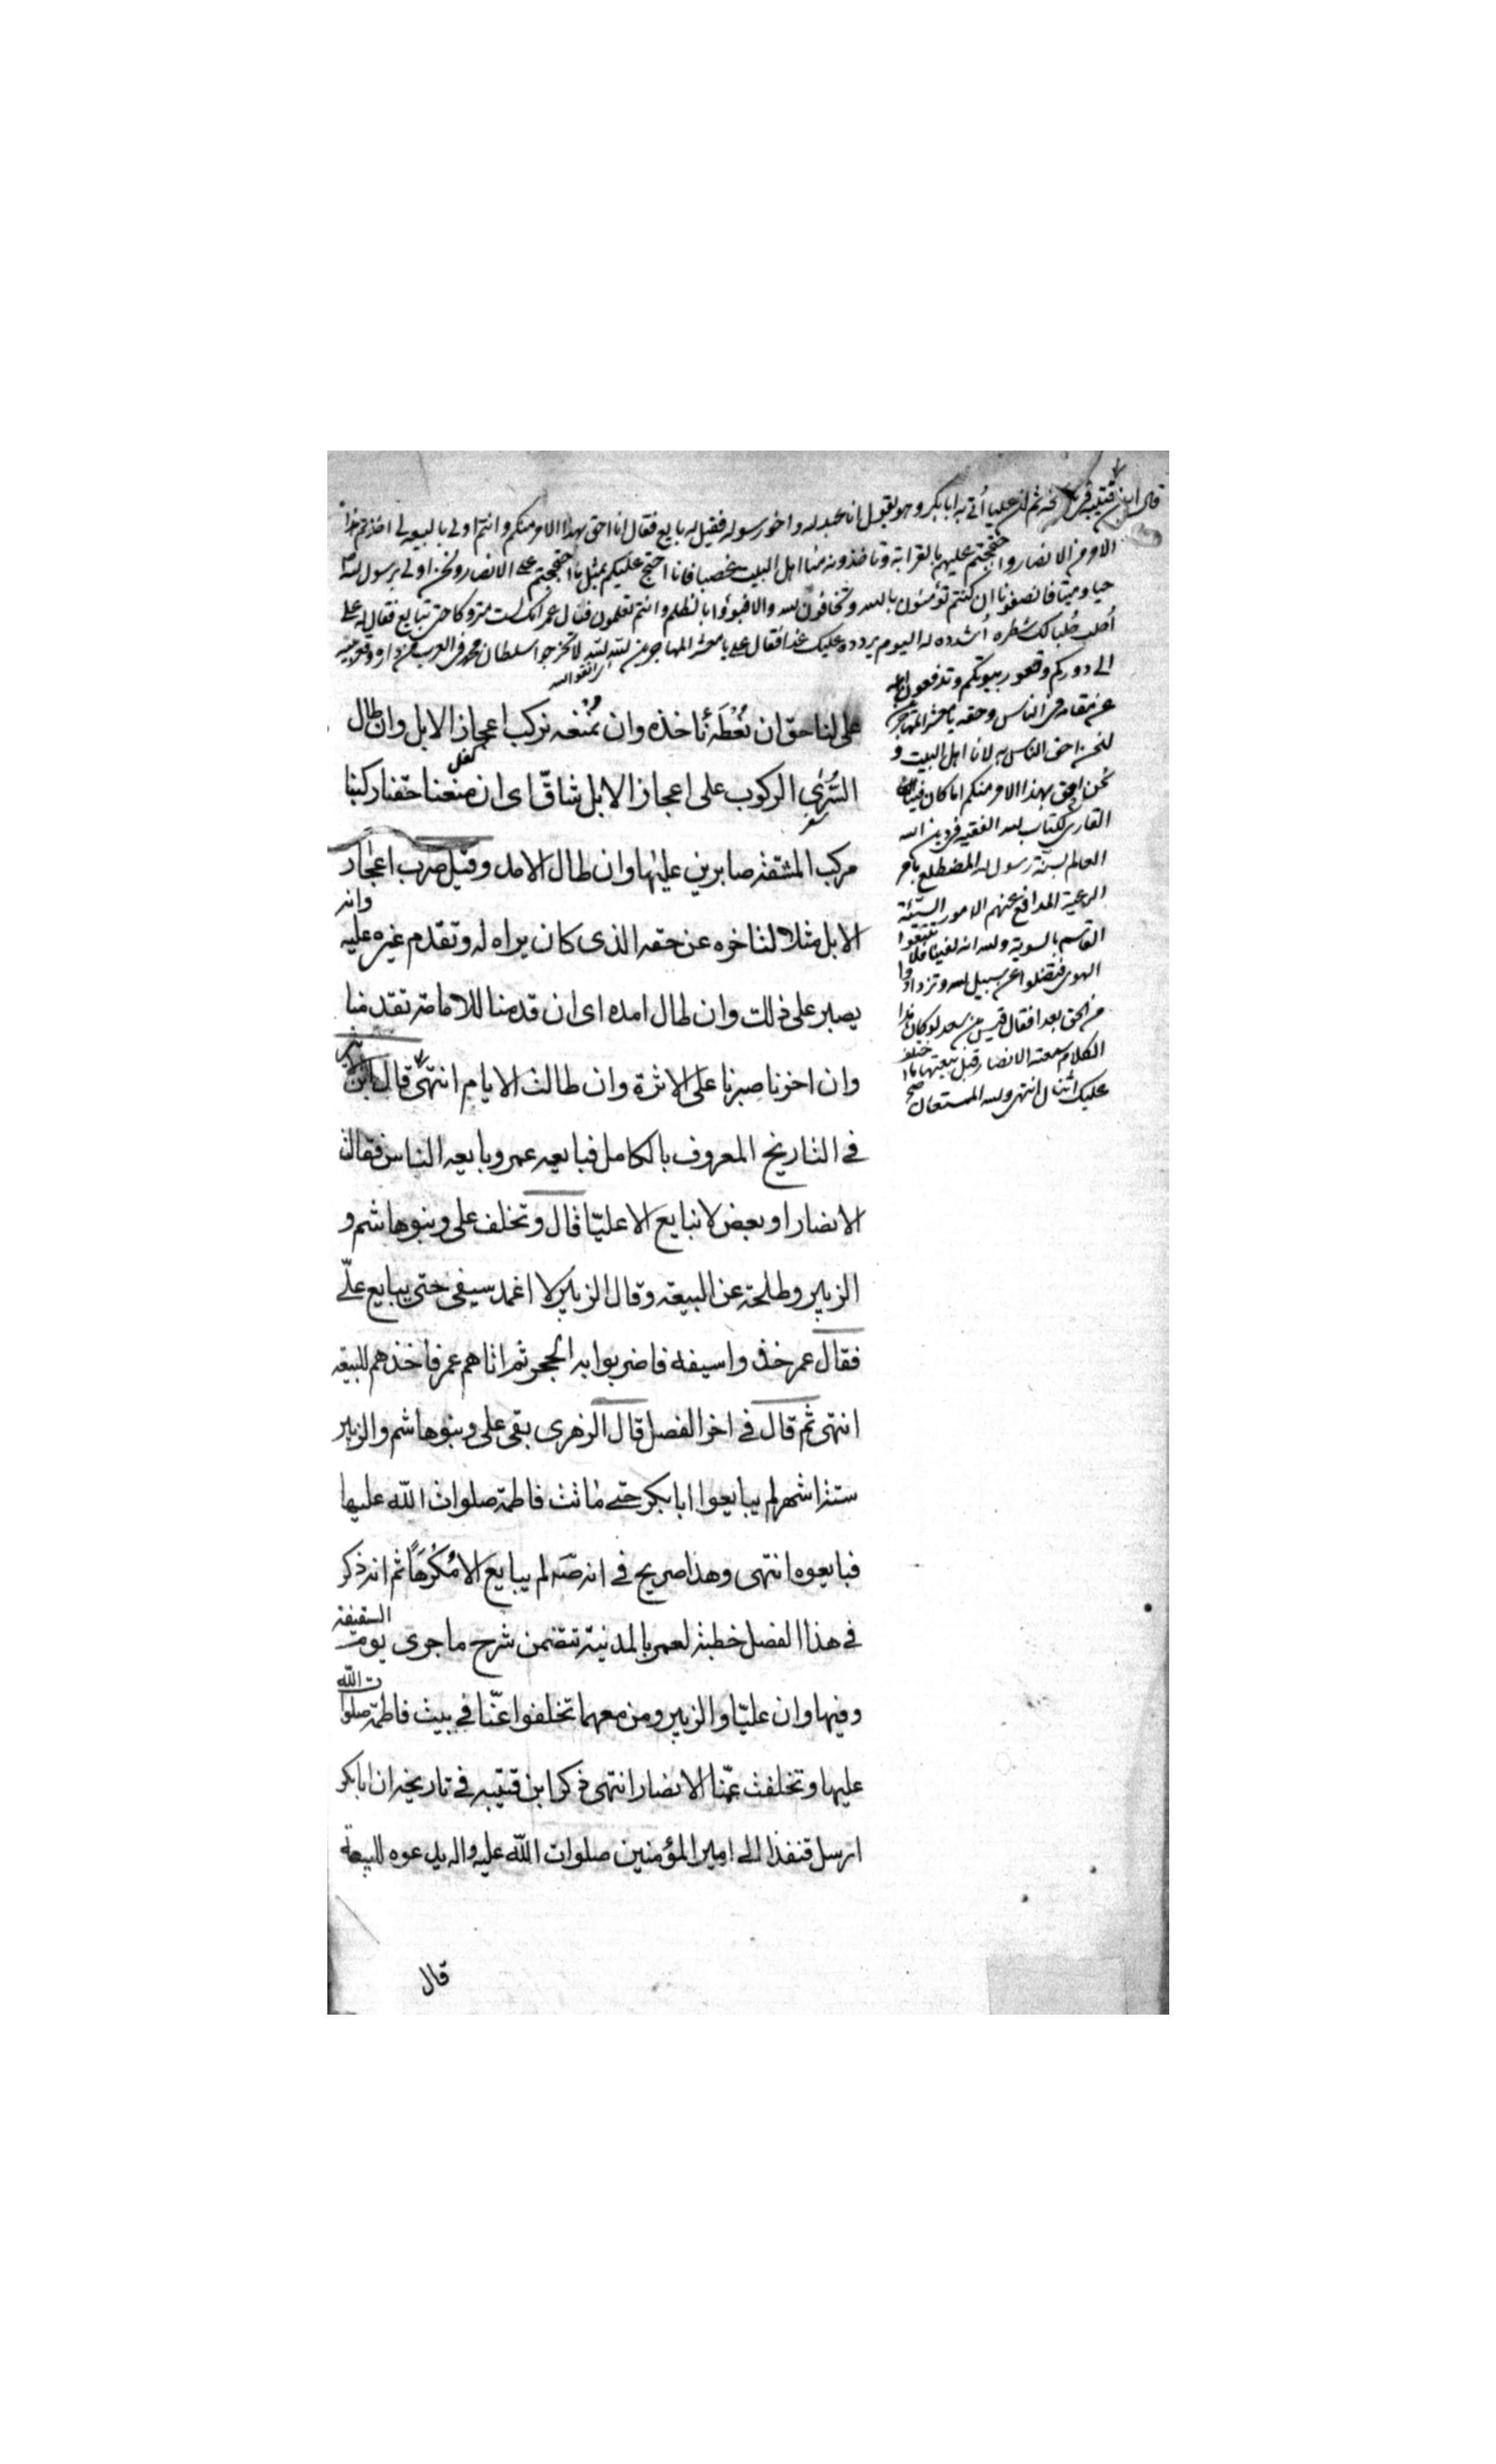 قال ابن قتيبة في تاريخه ثم ان عليا أتي به ابا بكر وهو يقول انا عبد الله واخو رسوله فقيل له بايع فقال انا احق بهذا الامر منكم وانتم اولى بالبيعة لي اخذتم هذا
الامر من الانصار واحتججتم عليهم بالقرابة وتاخذونه منا اهل البيت غصبا فانا احتج عليكم بمثل ما احتججتم على الانصار ونحن اولى برسول الله
حيا وميتا فانصفونا ان كنتم تؤمنون بالله وتخافون الله والا فبوؤا بالظلم وانتم تعلمون فقال عمر انك لست متروكا حتى تبايع فقال له علي
أحلب حلبا لك شطره أشدده له اليوم يردده عليك غدا فقال علي يا معشر المهاجرين الله الله لا تخرجوا سلطان محمد في العرب من داره وقعر بيته
الى دوركم وقعور بيوتكم وتدفعون اهله
عن مقامه في الناس وحقه يا معشر المهاجرين
لنحن احق الناس به لانا اهل البيت و
نحن احق بهذا الامر منكم اما كان فينا
القارى لكتاب الله الفقيه في دين الله
العالم بسنة رسول الله المضطلع بامر
الرعية المدافع عنهم الامور السيئة
القاسم بالسوية والله انه لفينا فلا تتبعوا
الهوى فتضلوا عن سبيل الله وتزدادوا
من الحق بعدا فقال قيس بن سعد لو كان هذا
الكلام سمعته الانصار قبل بيعتها ما اختلف
عليك اثنان انتهى والله المستعان صح
على لنا حق ان نُعْطَهُ نأخذه وان نُمْنَعْه نركب اعجاز الابل وان طال
السُّرَى الركوب على اعجاز الابل شاقّ اى ان منعنا حقنا ركبنا
مركب المشقة صابرين عليها وان طال الامد وقيل ضرب اعجاز
الابل مثلا لتاخره عن حقه الذى كان يراه له وتقدم غيره عليه وانه
يصبر على ذلك وان طال امده اى ان قدمنا للامامة تقدمنا
وان اخرنا صبرنا على الاثرة وان طالت الايام انتهى قال ابن الاثير
في التاريخ المعروف بالكامل فبايعه عمر وبايعه الناس فقالت
الانصار او بعض لا نبايع الا عليّا قال وتخلف على وبنو هاشم و
الزبير وطلحة عن البيعة وقال الزبير لا اغمد سيفى حتى يبايع علّى
فقال عمر خذوا سيفه فاضربوا به الحجر ثم اتاهم عمر فاخذهم للبيعة
انتهى ثم قال في اخر الفصل قال الزهرى بقى على وبنو هاشم والزبير
ستة اشهر لم يبايعوا ابا بكر حتى ماتت فاطمة صلوات الله عليها
فبايعوه انتهى وهذا صريح في انه صه لم يبايع الا مُكْرَهًا ثم انه ذكر
في هذا الفصل خطبة لعمر بالمدينة تتضمن شرح ما جرى يوم السقيفة
وفيها وان عليّا والزبير ومن معهما تخلفوا عنّا في بيت فاطمة صلوات الله
عليها وتخلفت عنّا الانصار انتهى ذكر ابن قتيبه في تاريخه ان ابا بكر
ارسل قنفذا الى امير المؤمنين صلوات الله عليه واله يدعوه للبيعة
قال